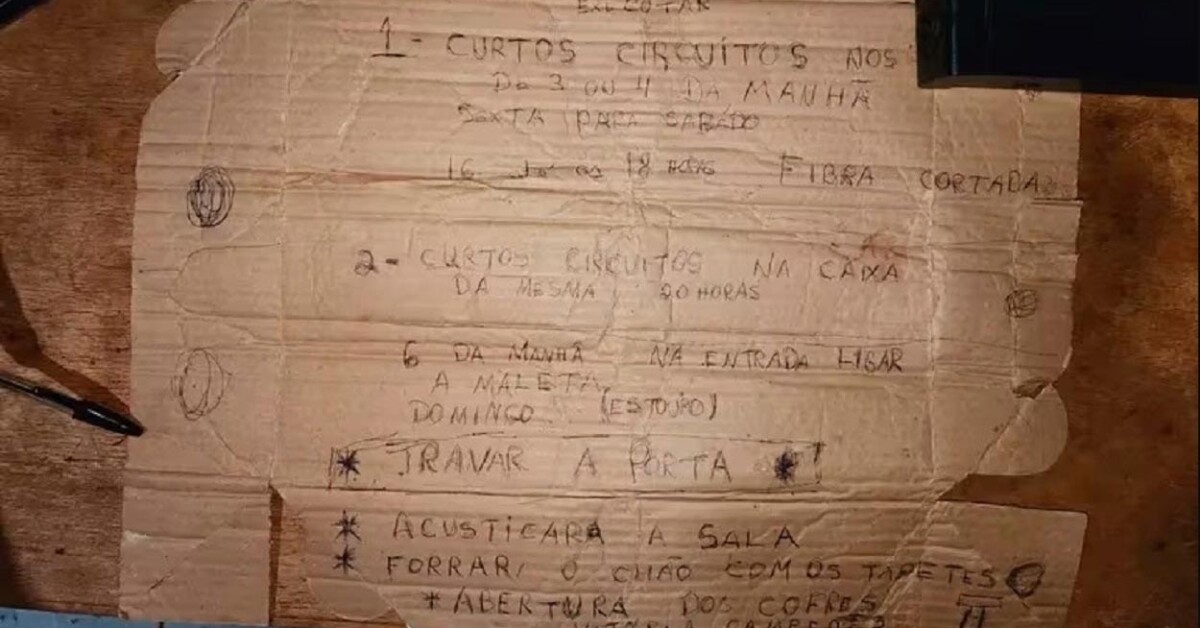 EXECUTAR
1 - CURTOS CIRCUÍTOS NOS
DO 3 OU 4 DA MANHÃ
SEXTA PARA SABÁDO
16 18 FIBRA CORTADA
2 - CURTOS CIRCUITOS NA CAIXA
DA MESMA 20 HORAS
6 DA MANHÃ NA ENTRADA LIGAR
A MALETA
DOMINGO (ESTOURO)
* TRAVAR A PORTA *
* ACUSTICARA A SALA
* FORRAR O CHÃO COM OS TAPETES
* ABERTURA DOS COFRES